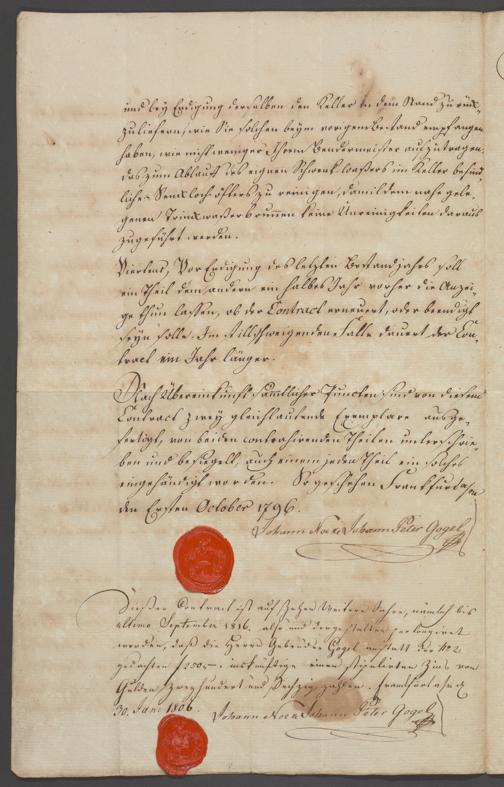 und bey Endigung derselben den Keller in dem Stand zurück-
zuliefern, wie Sie solchen beym vorigen Bestand empfangen
haben, wie nicht weniger Ihrem Bendermeister aufzutragen,
das zum Ablauff des eignen Schwenk-Waßers im Keller befind-
liche Senckloch öfters zu reinigen, damit dem nahe gele-
genen Trinckwaßerbrunnen keine Unreinigkeiten daraus
zugeführt werden.
Viertens, Vor Endigung des letzten Bestandjahrs soll
ein Theil dem andern ein halbes Jahr vorher die Anzei-
ge thun lassen, ob der Contract erneuert, oder beendigt
seyn solle. Im stillschweigenden Falle dauert der Con-
tract ein Jahr länger.
Nach Übereinkunft sämtlicher Puncten sind von diesem
Contract zwey gleichlautende Exemplare ausge-
fertigt, von beiden contrahirenden Theilen unterschrie-
ben und besiegelt, auch einem jeden Theil ein solches
eingehändigt worden. So geschehen Frankfurt
den Ersten October 1796.
Johann Johann Peter Gogel
Dießer Contract ist auf Zehen weitere Jahre, nämlich bis
ultimo September 1816. also und dergestalten prolongiret
worden, daß die Herrn Gebrüder Gogel anstatt der
gedachten f250,- inskünftige einen stipulirten Zins von
Gulden Zweyhundert und Sechzig zahlen. Frankfurt
30. Juni 1806. Johann Johann Peter Gogel